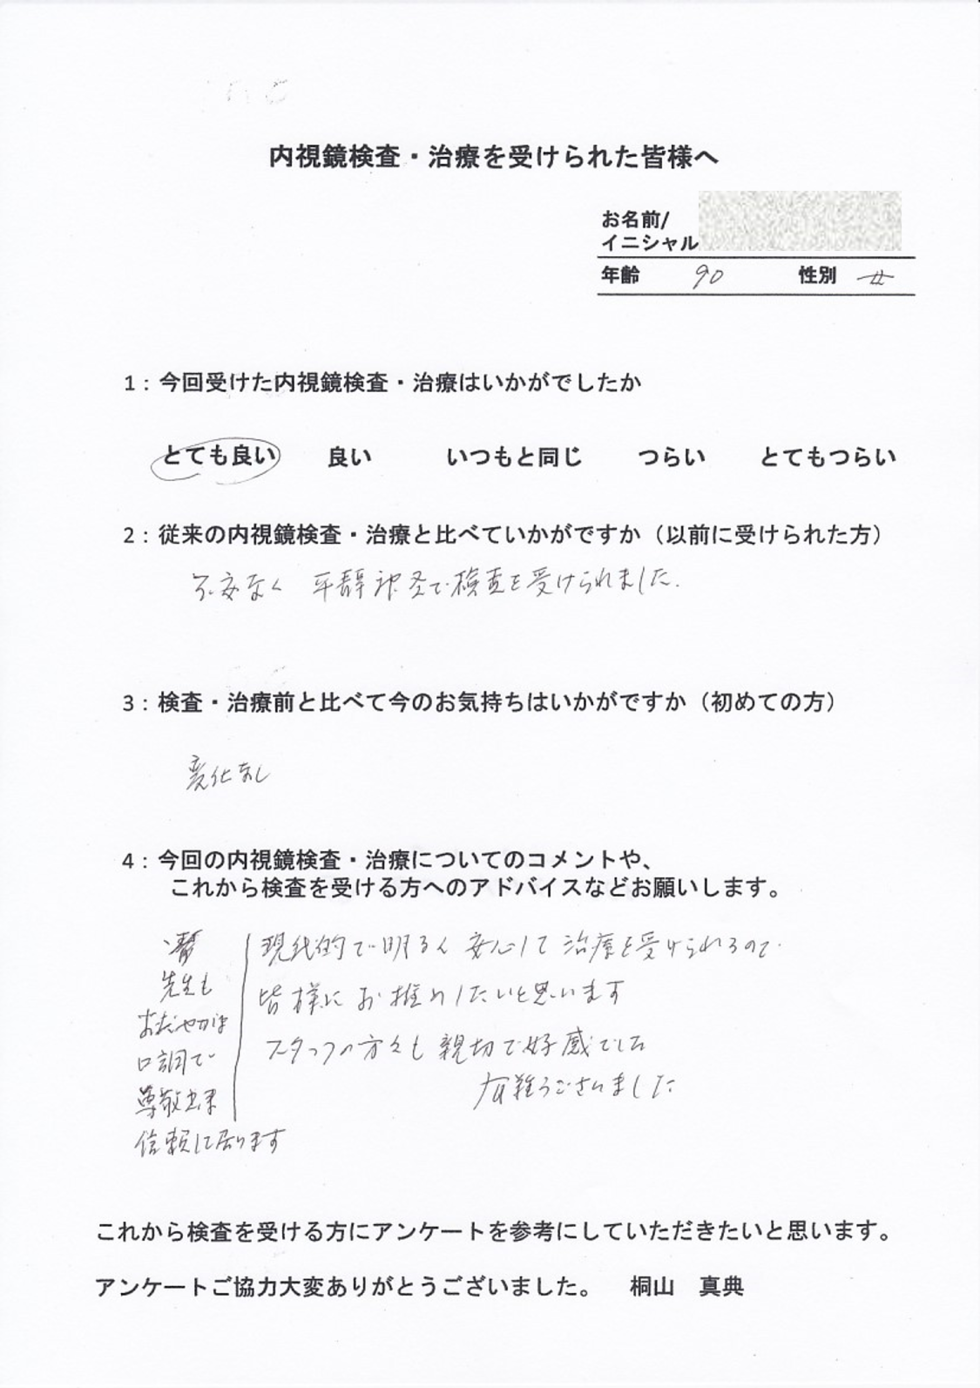 内視鏡検査・治療を受けられた皆様へ
お名前/
イニシャル
年齢 90 性別 女
1：今回受けた内視鏡検査・治療はいかがでしたか
とても良い 良い いつもと同じ つらい とてもつらい
2：従来の内視鏡検査・治療と比べていかがですか（以前に受けられた方）
不安なく 平静 で検査を受けられました.
3：検査・治療前と比べて今のお気持ちはいかがですか（初めての方）
変化なし
4：今回の内視鏡検査・治療についてのコメントや、
これから検査を受ける方へのアドバイスなどお願いします。
現代的で明るく 安心して 治療を受けられるので
皆様に お推めしたいと思います
スタッフの方々も 親切で好感でした
有難うございました
先生も
おだやかな
口調で
尊敬出来
信頼して居ります
これから検査を受ける方にアンケートを参考にしていただきたいと思います。
アンケートご協力大変ありがとうございました。 桐山 真典